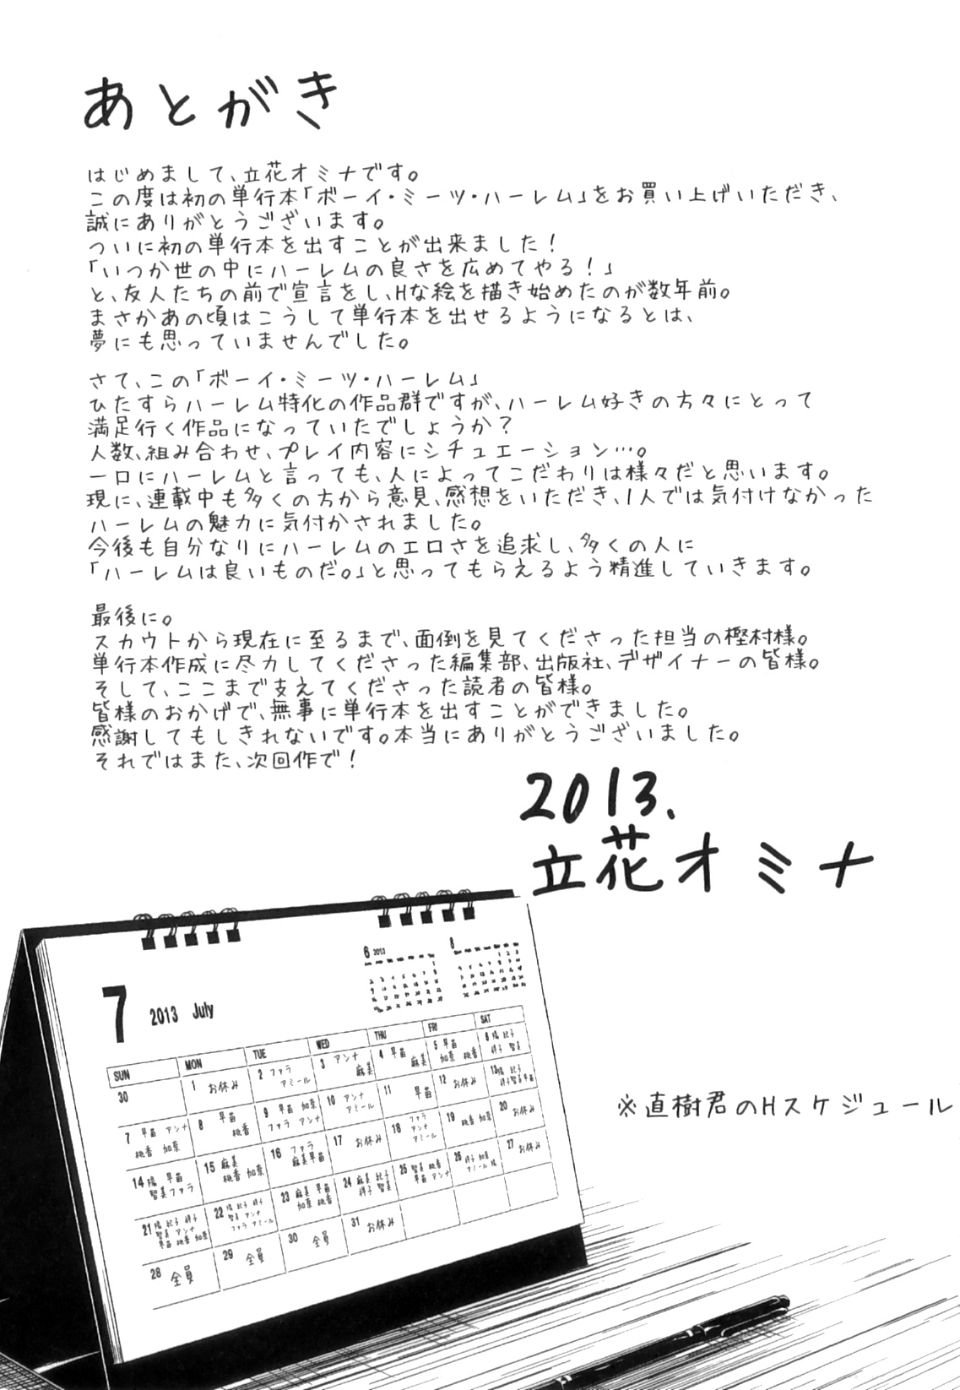 あとがき
はじめまして、立花オミナです。
この度は初の単行本「ボーイ・ミーツ・ハーレム」をお買い上げいただき、
誠にありがとうございます。
ついに初の単行本を出すことが出来ました！
「いつか世の中にハーレムの良さを広めてやる！」
と、友人たちの前で宣言をし、Hな絵を描き始めたのが数年前。
まさかあの頃はこうして単行本を出せるようになるとは、
夢にも思っていませんでした。
さて、この「ボーイ・ミーツ・ハーレム」
ひたすらハーレム特化の作品群ですが、ハーレム好きの方々にとって
満足行く作品になっていたでしょうか？
人数、組み合わせ、プレイ内容にシチュエーション…。
一口にハーレムと言っても、人によってこだわりは様々だと思います。
現に、連載中も多くの方から意見、感想をいただき、1人では気付けなかった
ハーレムの魅力に気付かされました。
今後も自分なりにハーレムのエロさを追求し、多くの人に
「ハーレムは良いものだ。」と思ってもらえるよう精進していきます。
最後に。
スカウトから現在に至るまで、面倒を見てくださった担当の樫村様。
単行本作成に尽力してくださった編集部、出版社、デザイナーの皆様。
そして、ここまで支えてくださった読者の皆様。
皆様のおかげで、無事に単行本を出すことができました。
感謝してもしきれないです。本当にありがとうございました。
それではまた、次回作で！
2013.
立花オミナ
6 2013
8
7 2013 July
SUN MON TUE WED THU FRI SAT
30 1 お休み 2 ファラ アミール 3 アンナ 麻美 4 早苗 麻美 5 早苗 加奈 桃香 6
7 早苗 アンナ 桃香 加奈 8 早苗 桃香 9 早苗 加奈 ファラ アンナ 10 アンナ アミール 11 早苗 12 お休み 13
14 早苗 智美 ファラ 15 麻美 桃香 加奈 16 ファラ 麻美 早苗 17 お休み 18 ファラ アミール 19 早苗 桃香 20 お休み
21 22 23 麻美 早苗 加奈 桃香 24 25 26 27 お休み
28 全員 29 全員 30 全員 31 お休み
※直樹君のHスケジュール